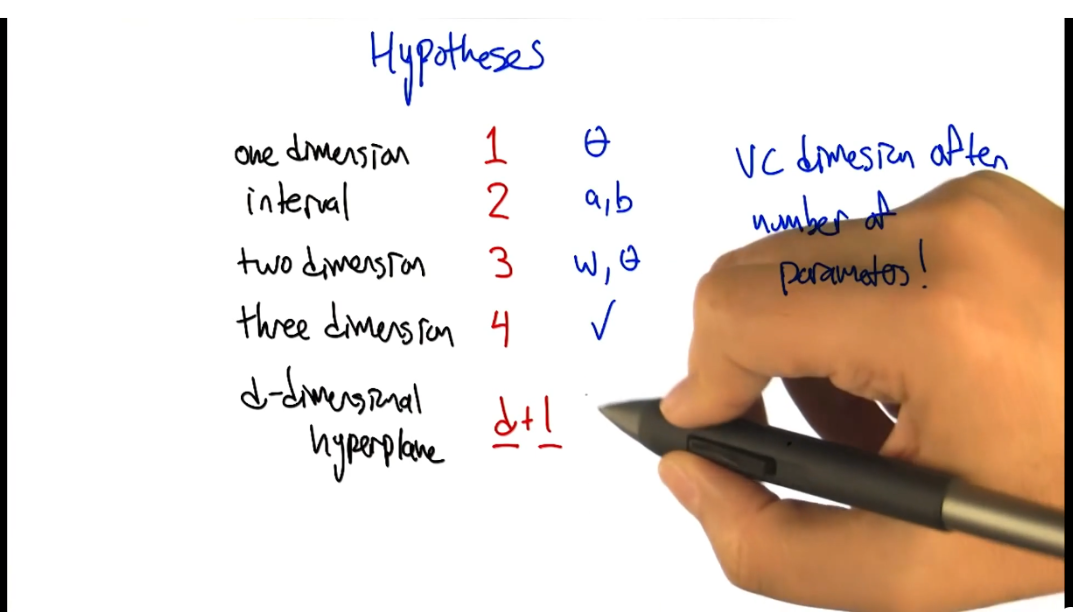 Hypotheses
one dimension 1 θ
interval 2 a,b
two dimension 3 w, θ
three dimension 4 ✓
d-dimensional
hyperplane d+1
VC dimesion often
number of
parameters!